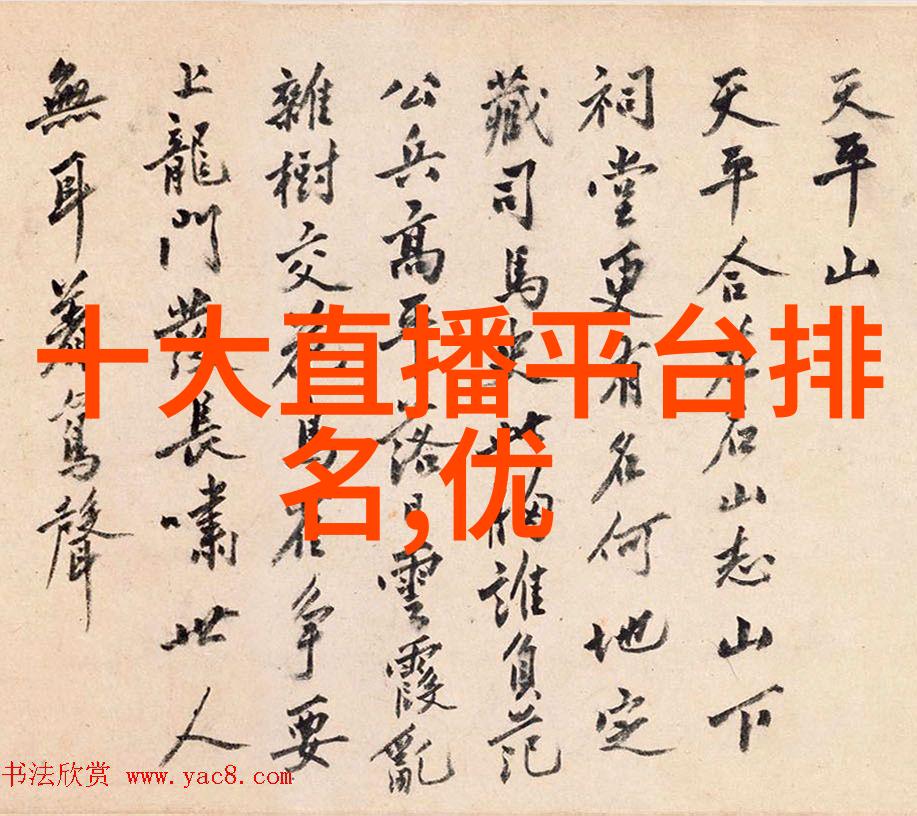 天平山
天平合石山志山下
祠堂更有名何地定
藏司馬史此誰負范
公兵高平落日雲霞亂
雜樹交石爭要
上龍門發長嘯世人
無耳聲
十大直播平台排
名,优
书法欣赏 www.yac8.com